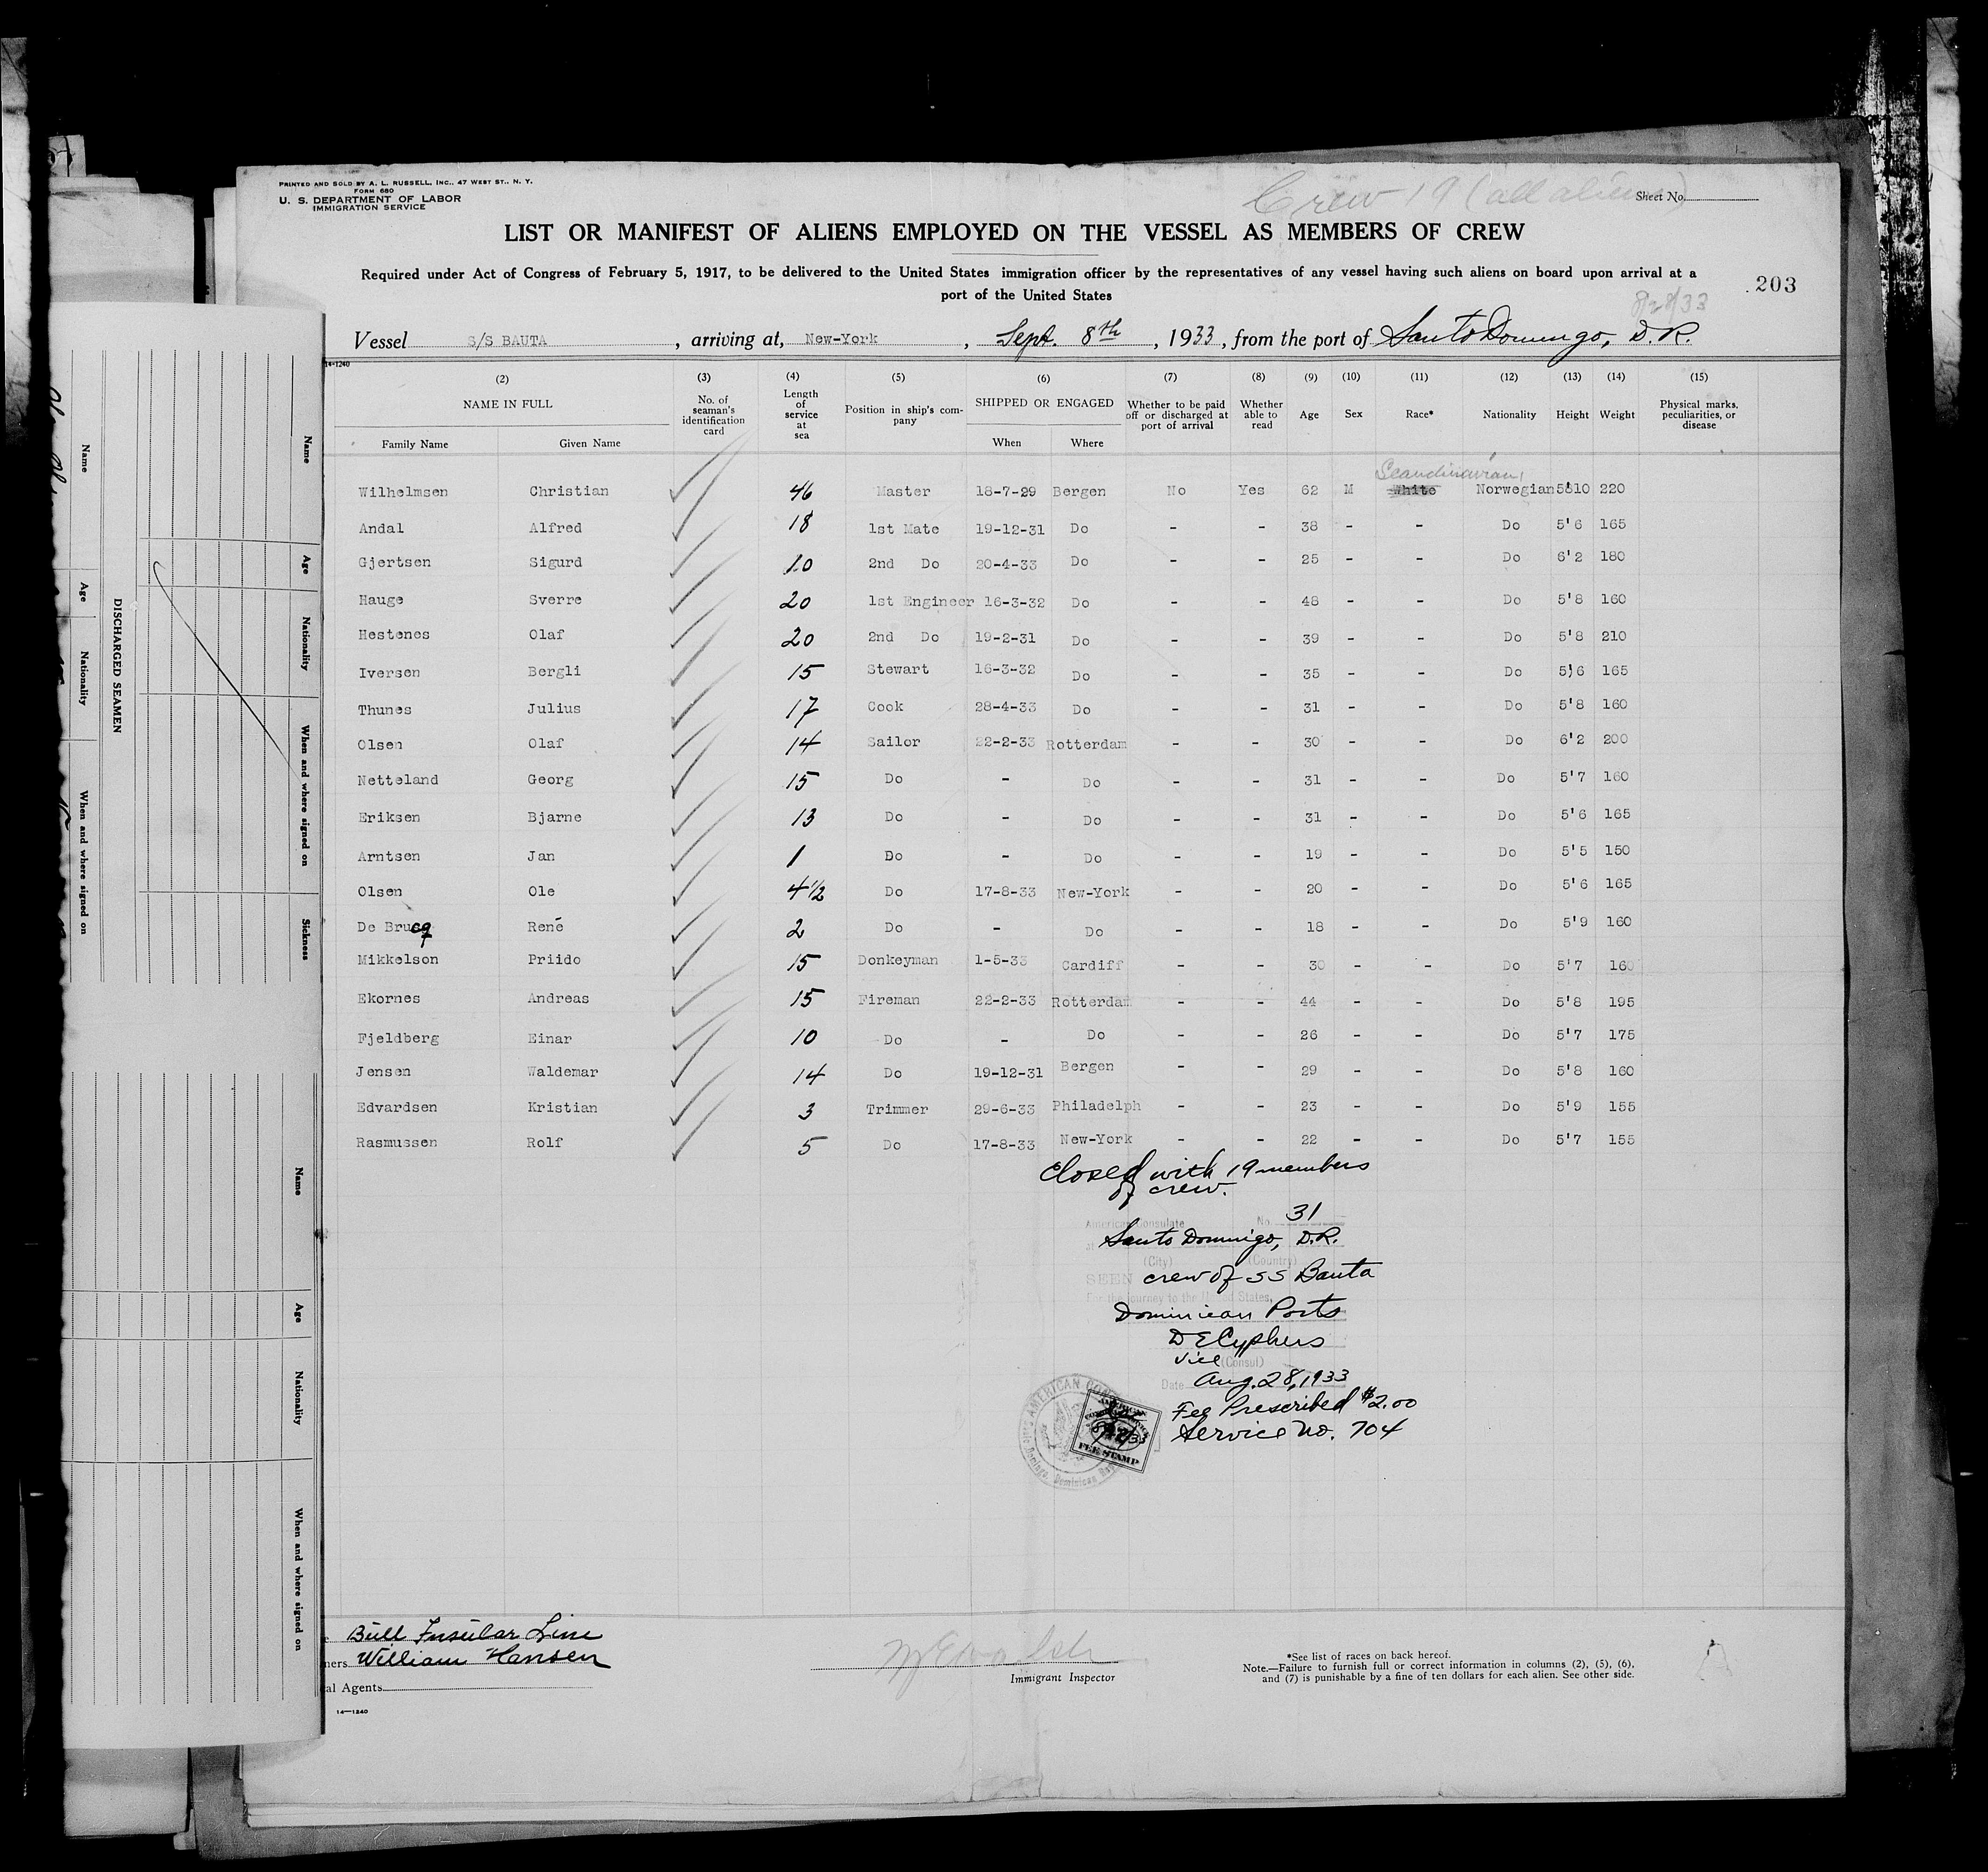 PRINTED AND SOLD BY A. L. RUSSELL, INC., 47 WEST ST., N. Y.
FORM 680
U. S. DEPARTMENT OF LABOR
IMMIGRATION SERVICE
Crew 19 (all aliens)
Sheet No.
LIST OR MANIFEST OF ALIENS EMPLOYED ON THE VESSEL AS MEMBERS OF CREW
Required under Act of Congress of February 5, 1917, to be delivered to the United States immigration officer by the representatives of any vessel having such aliens on board upon arrival at a
port of the United States
203
8/28/33
Vessel S/S BAUTA, arriving at, New-York, Sept. 8th, 1933, from the port of Santo Domingo, D. R.
14-1240
(2) (3) (4) (5) (6) (7) (8) (9) (10) (11) (12) (13) (14) (15)
NAME IN FULL No. of seaman's identification card Length of service at sea Position in ship's company SHIPPED OR ENGAGED Whether to be paid off or discharged at port of arrival Whether able to read Age Sex Race* Nationality Height Weight Physical marks, peculiarities, or disease
Family Name Given Name When Where
Scandinavian
Wilhelmsen Christian 46 Master 18-7-29 Bergen No Yes 62 M White Norwegian 5'10 220
Andal Alfred 18 1st Mate 19-12-31 Do - - 38 - - Do 5'6 165
Gjertsen Sigurd 10 2nd Do 20-4-33 Do - - 25 - - Do 6'2 180
Hauge Sverre 20 1st Engineer 16-3-32 Do - - 48 - - Do 5'8 160
Hestenes Olaf 20 2nd Do 19-2-31 Do - - 39 - - Do 5'8 210
Iversen Bergli 15 Stewart 16-3-32 Do - - 35 - - Do 5)6 165
Thunes Julius 17 Cook 28-4-33 Do - - 31 - - Do 5'8 160
Olsen Olaf 14 Sailor 22-2-33 Rotterdam - - 30 - - Do 6'2 200
Netteland Georg 15 Do - Do - - 31 - - Do 5'7 160
Eriksen Bjarne 13 Do - Do - - 31 - - Do 5'6 165
Arntsen Jan 1 Do - Do - - 19 - - Do 5'5 150
Olsen Ole 4 1/2 Do 17-8-33 New-York - - 20 - - Do 5'6 165
De Brucq René 2 Do - Do - - 18 - - Do 5'9 160
Mikkelson Priido 15 Donkeyman 1-5-33 Cardiff - - 30 - - Do 5'7 160
Ekornes Andreas 15 Fireman 22-2-33 Rotterdam - - 44 - - Do 5'8 195
Fjeldberg Einar 10 Do - Do - - 26 - - Do 5'7 175
Jensen Waldemar 14 Do 19-12-31 Bergen - - 29 - - Do 5'8 160
Edvardsen Kristian 3 Trimmer 29-6-33 Philadelph - - 23 - - Do 5'9 155
Rasmussen Rolf 5 Do 17-8-33 New-York - - 22 - - Do 5'7 155
Closed with 19 members
of crew.
American Consulate No. 31
Santo Domingo, D.R.
(City) (Country)
SEEN crew of SS Bauta
For the journey to the United States,
Dominican Ports
D E Cyphers
Vice (Consul)
Date Aug. 28, 1933
Fee Prescribed $2.00
Service No. 704
AMERICAN
FEE STAMP
Bull Insular Line
ners William Hansen
al Agents
14—1240
Immigrant Inspector
*See list of races on back hereof.
Note.—Failure to furnish full or correct information in columns (2), (5), (6),
and (7) is punishable by a fine of ten dollars for each alien. See other side.
DISCHARGED SEAMEN
Name Age Nationality When and where signed on Sickness
Name Age Nationality When and where signed on
Name Age Nationality When and where signed on